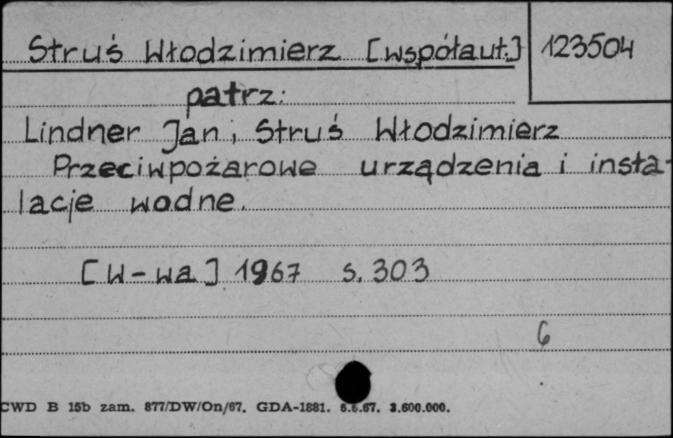 Struś Włodzimierz [współaut.] 123504
patrz:
Lindner Jan, Struś Włodzimierz
Przeciwpożarowe urządzenia i insta-
lacje wodne.
[W-wa] 1967 s. 303
6
CWD B 15b zam. 877/DW/On/67. GDA-1881. 6.6.67. 3.600.000.